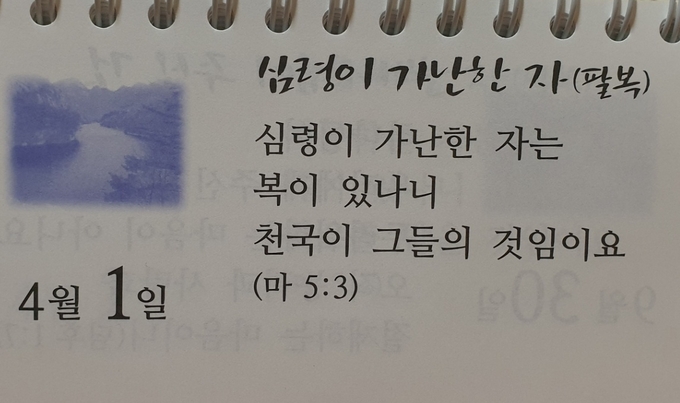 심령이 가난한 자(팔복)
심령이 가난한 자는
복이 있나니
천국이 그들의 것임이요
(마 5:3)
4월 1일